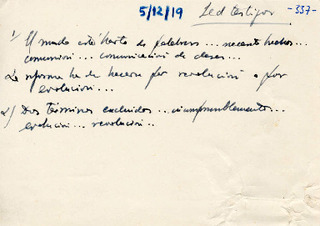 5/12/19 Led testigos -337-
1) El mundo está harto de palabras... necesita hechos...
comunión... comunicación de
La reforma ha de hacerse por revolución o por
evolución...
2) Dos términos excluidos...
evolución... revolución..